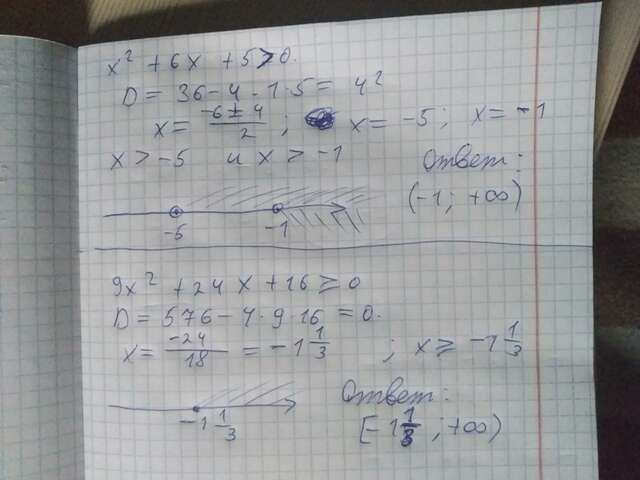 x² + 6x + 5 > 0.
D = 36 - 4 · 1 · 5 = 4²
x = (-6 ± 4)/2 ; x = -5 ; x = -1
x > -5 и x > -1 Ответ:
(-1; +∞)
-5 -1
9x² + 24x + 16 ≥ 0
D = 576 - 4 · 9 · 16 = 0.
x = -24/18 = -1 1/3 ; x ≥ -1 1/3
Ответ:
-1 1/3
[-1 1/3 ; +∞)